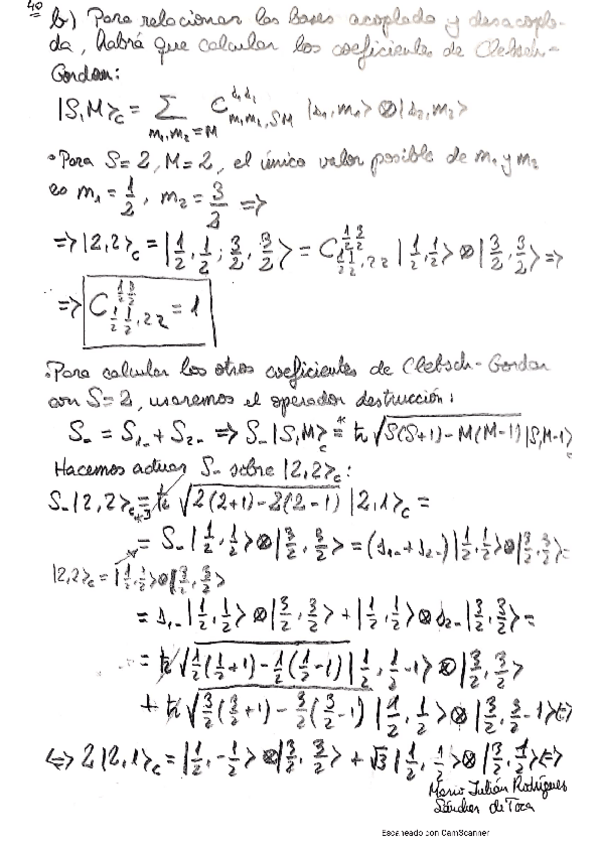 40
b) Para relacionar las bases acoplada y desacopla-
da, habrá que calcular los coeficientes de Clebsch-
Gordan:
|S,M>_c = ∑_{m₁,m₂=M} C^{s₁s₂}_{m₁m₂,SM} |s₁,m₁> ⊗ |s₂,m₂>
• Para S=2, M=2, el único valor posible de m₁ y m₂
es m₁ = 1/2, m₂ = 3/2 =>
=> |2,2>_c = |1/2,1/2; 3/2,3/2> = C^{1/2 3/2}_{1/2 1/2,22} |1/2,1/2> ⊗ |3/2,3/2> =>
=> C^{1/2 3/2}_{1/2 1/2,22} = 1
• Para calcular los otros coeficientes de Clebsch-Gordan
con S=2, usaremos el operador destrucción:
S₋ = S₁₋ + S₂₋ => S₋|S,M>_c =* ħ √(S(S+1)-M(M-1)) |S,M-1>_c
Hacemos actuar S₋ sobre |2,2>_c:
S₋|2,2>_c = ħ √(2(2+1)-2(2-1)) |2,1>_c =
= S₋ |1/2,1/2> ⊗ |3/2,3/2> = (s₁₋+s₂₋) |1/2,1/2> ⊗ |3/2,3/2> =
|2,2>_c = |1/2,1/2> ⊗ |3/2,3/2>
= s₁₋ |1/2,1/2> ⊗ |3/2,3/2> + |1/2,1/2> ⊗ s₂₋ |3/2,3/2> =
= ħ √(1/2(1/2+1)-1/2(1/2-1)) |1/2,1/2-1> ⊗ |3/2,3/2>
+ ħ √(3/2(3/2+1)-3/2(3/2-1)) |1/2,1/2> ⊗ |3/2,3/2-1> <=>
<=> 2|2,1>_c = |1/2,-1/2> ⊗ |3/2,3/2> + √3 |1/2,1/2> ⊗ |3/2,1/2> <=>
Mario Julián Rodríguez
Sánchez de Toca
Escaneado con CamScanner